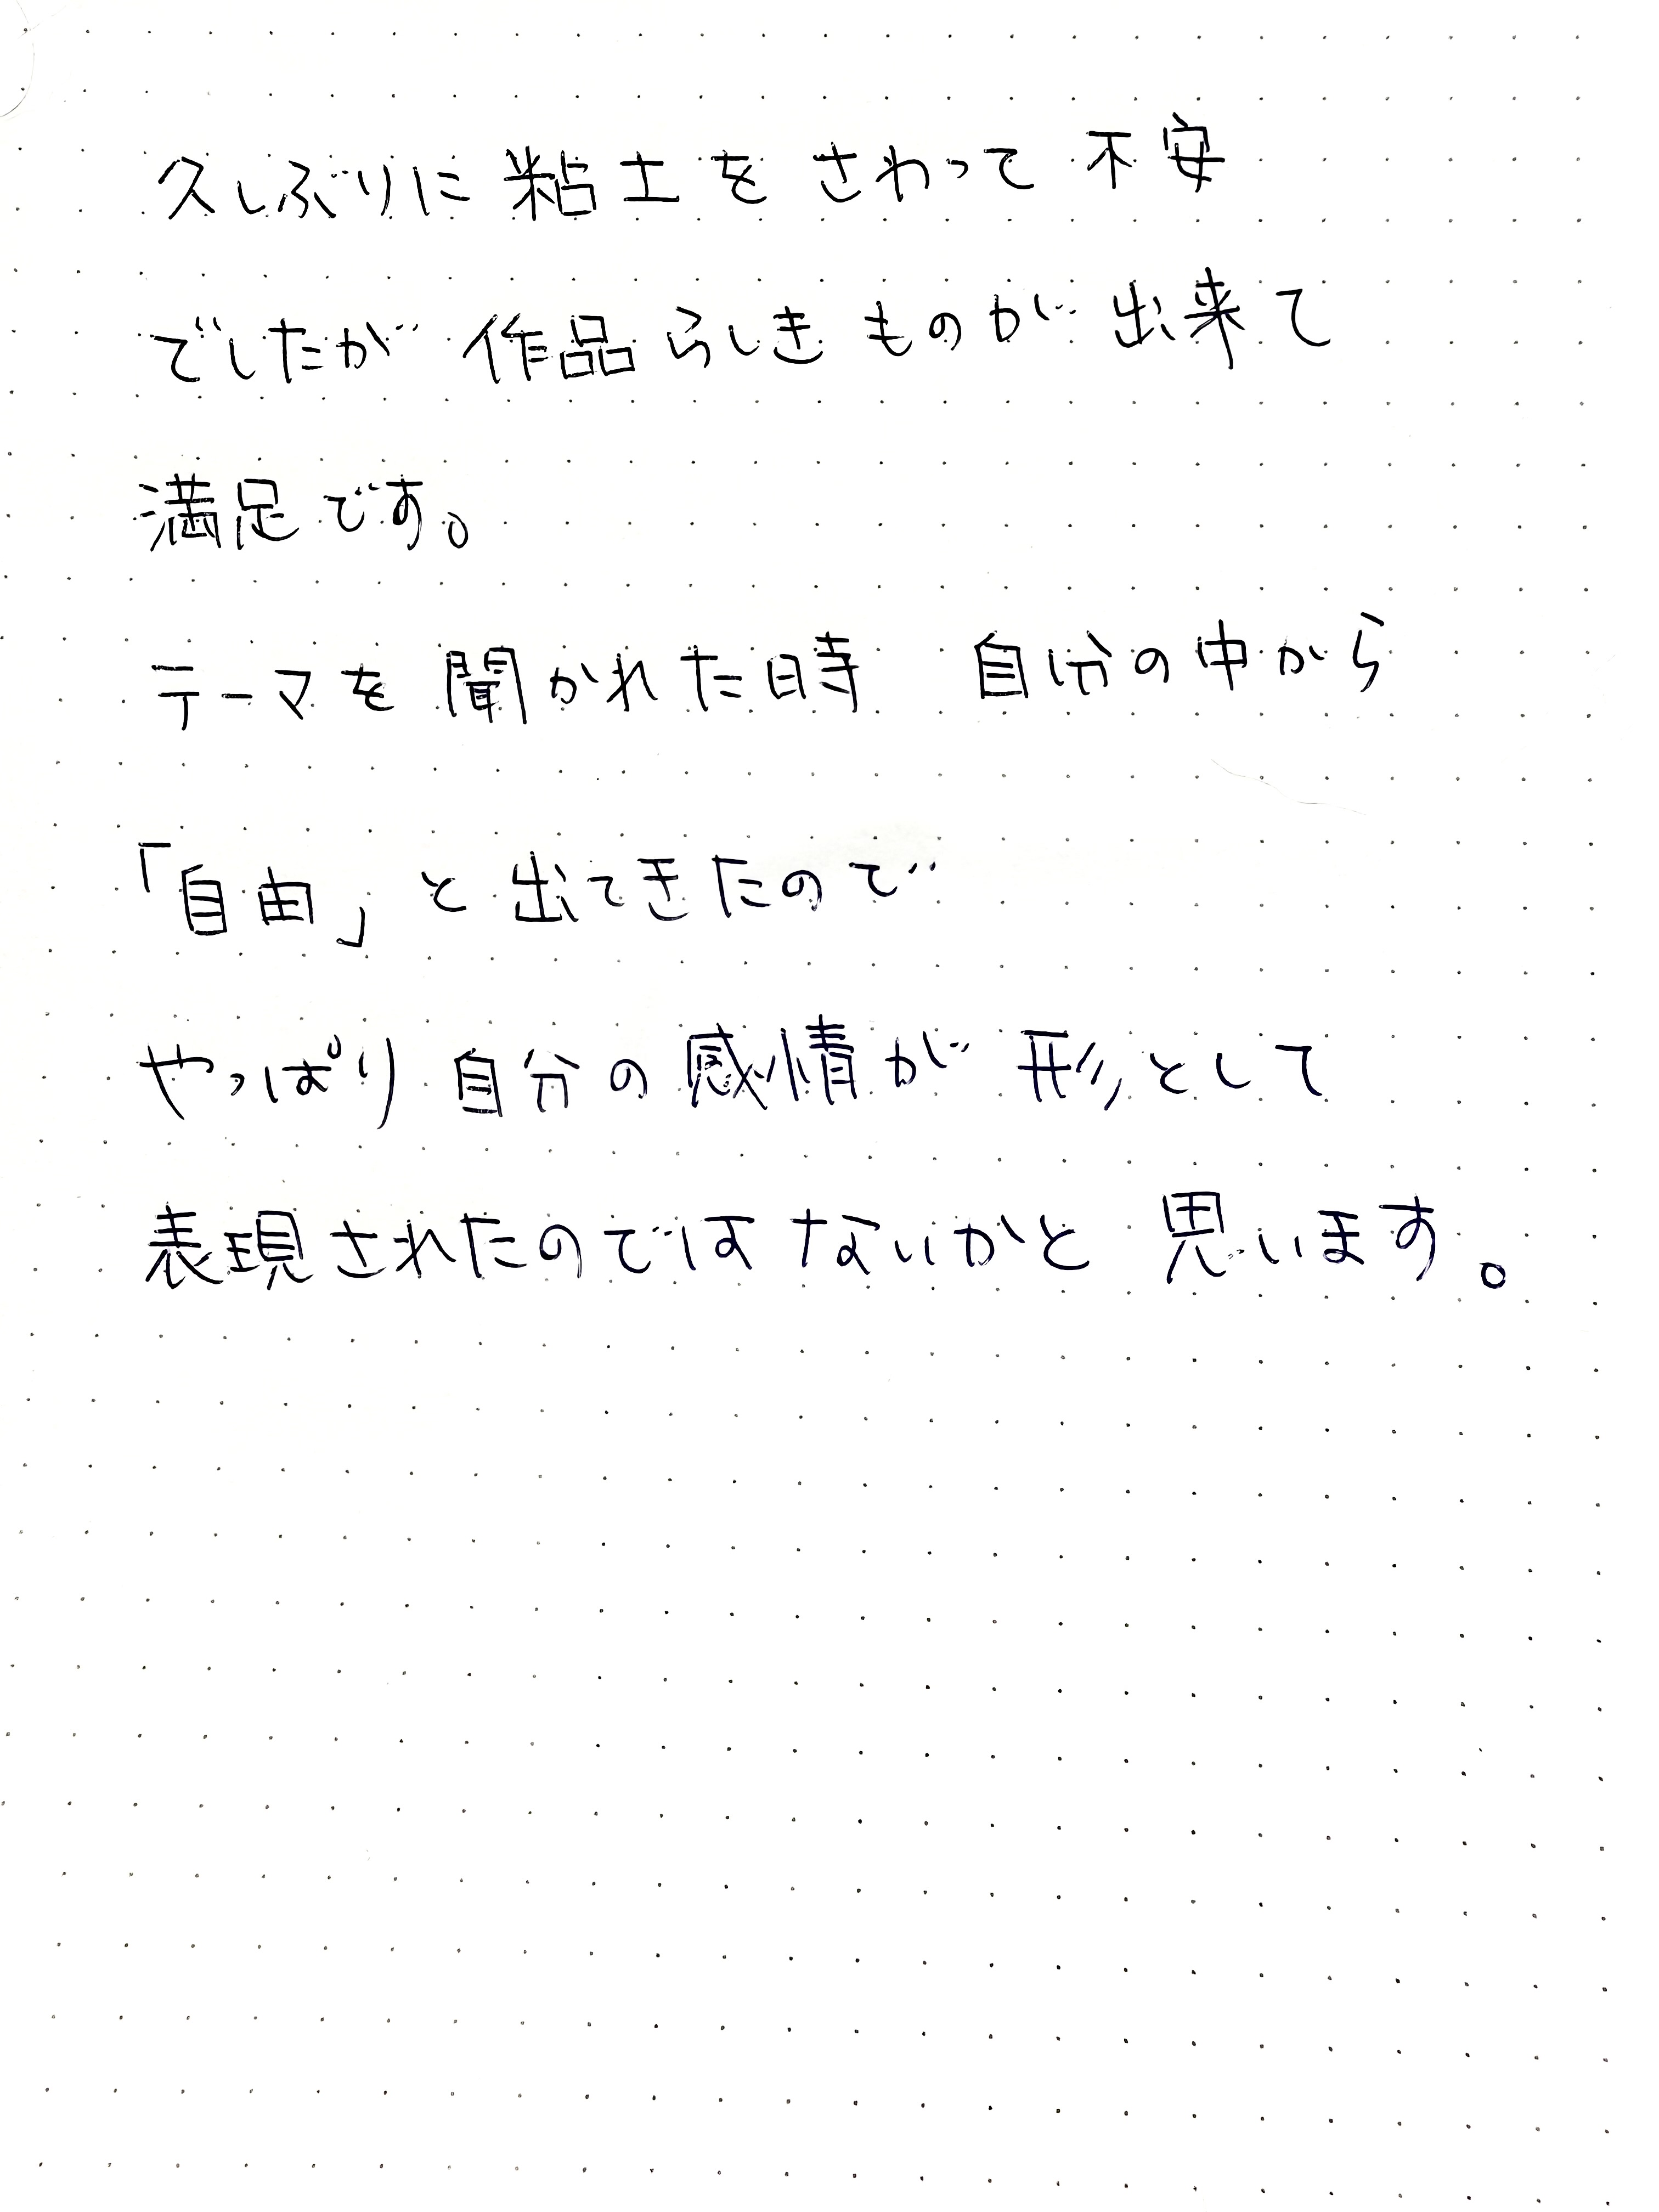 久しぶりに粘土をさわって不安
でしたが作品らしきものが出来て
満足です。
テーマを聞かれた時　自分の中から
「自由」と出てきたので
やっぱり自分の感情が形として
表現されたのではないかと思います。